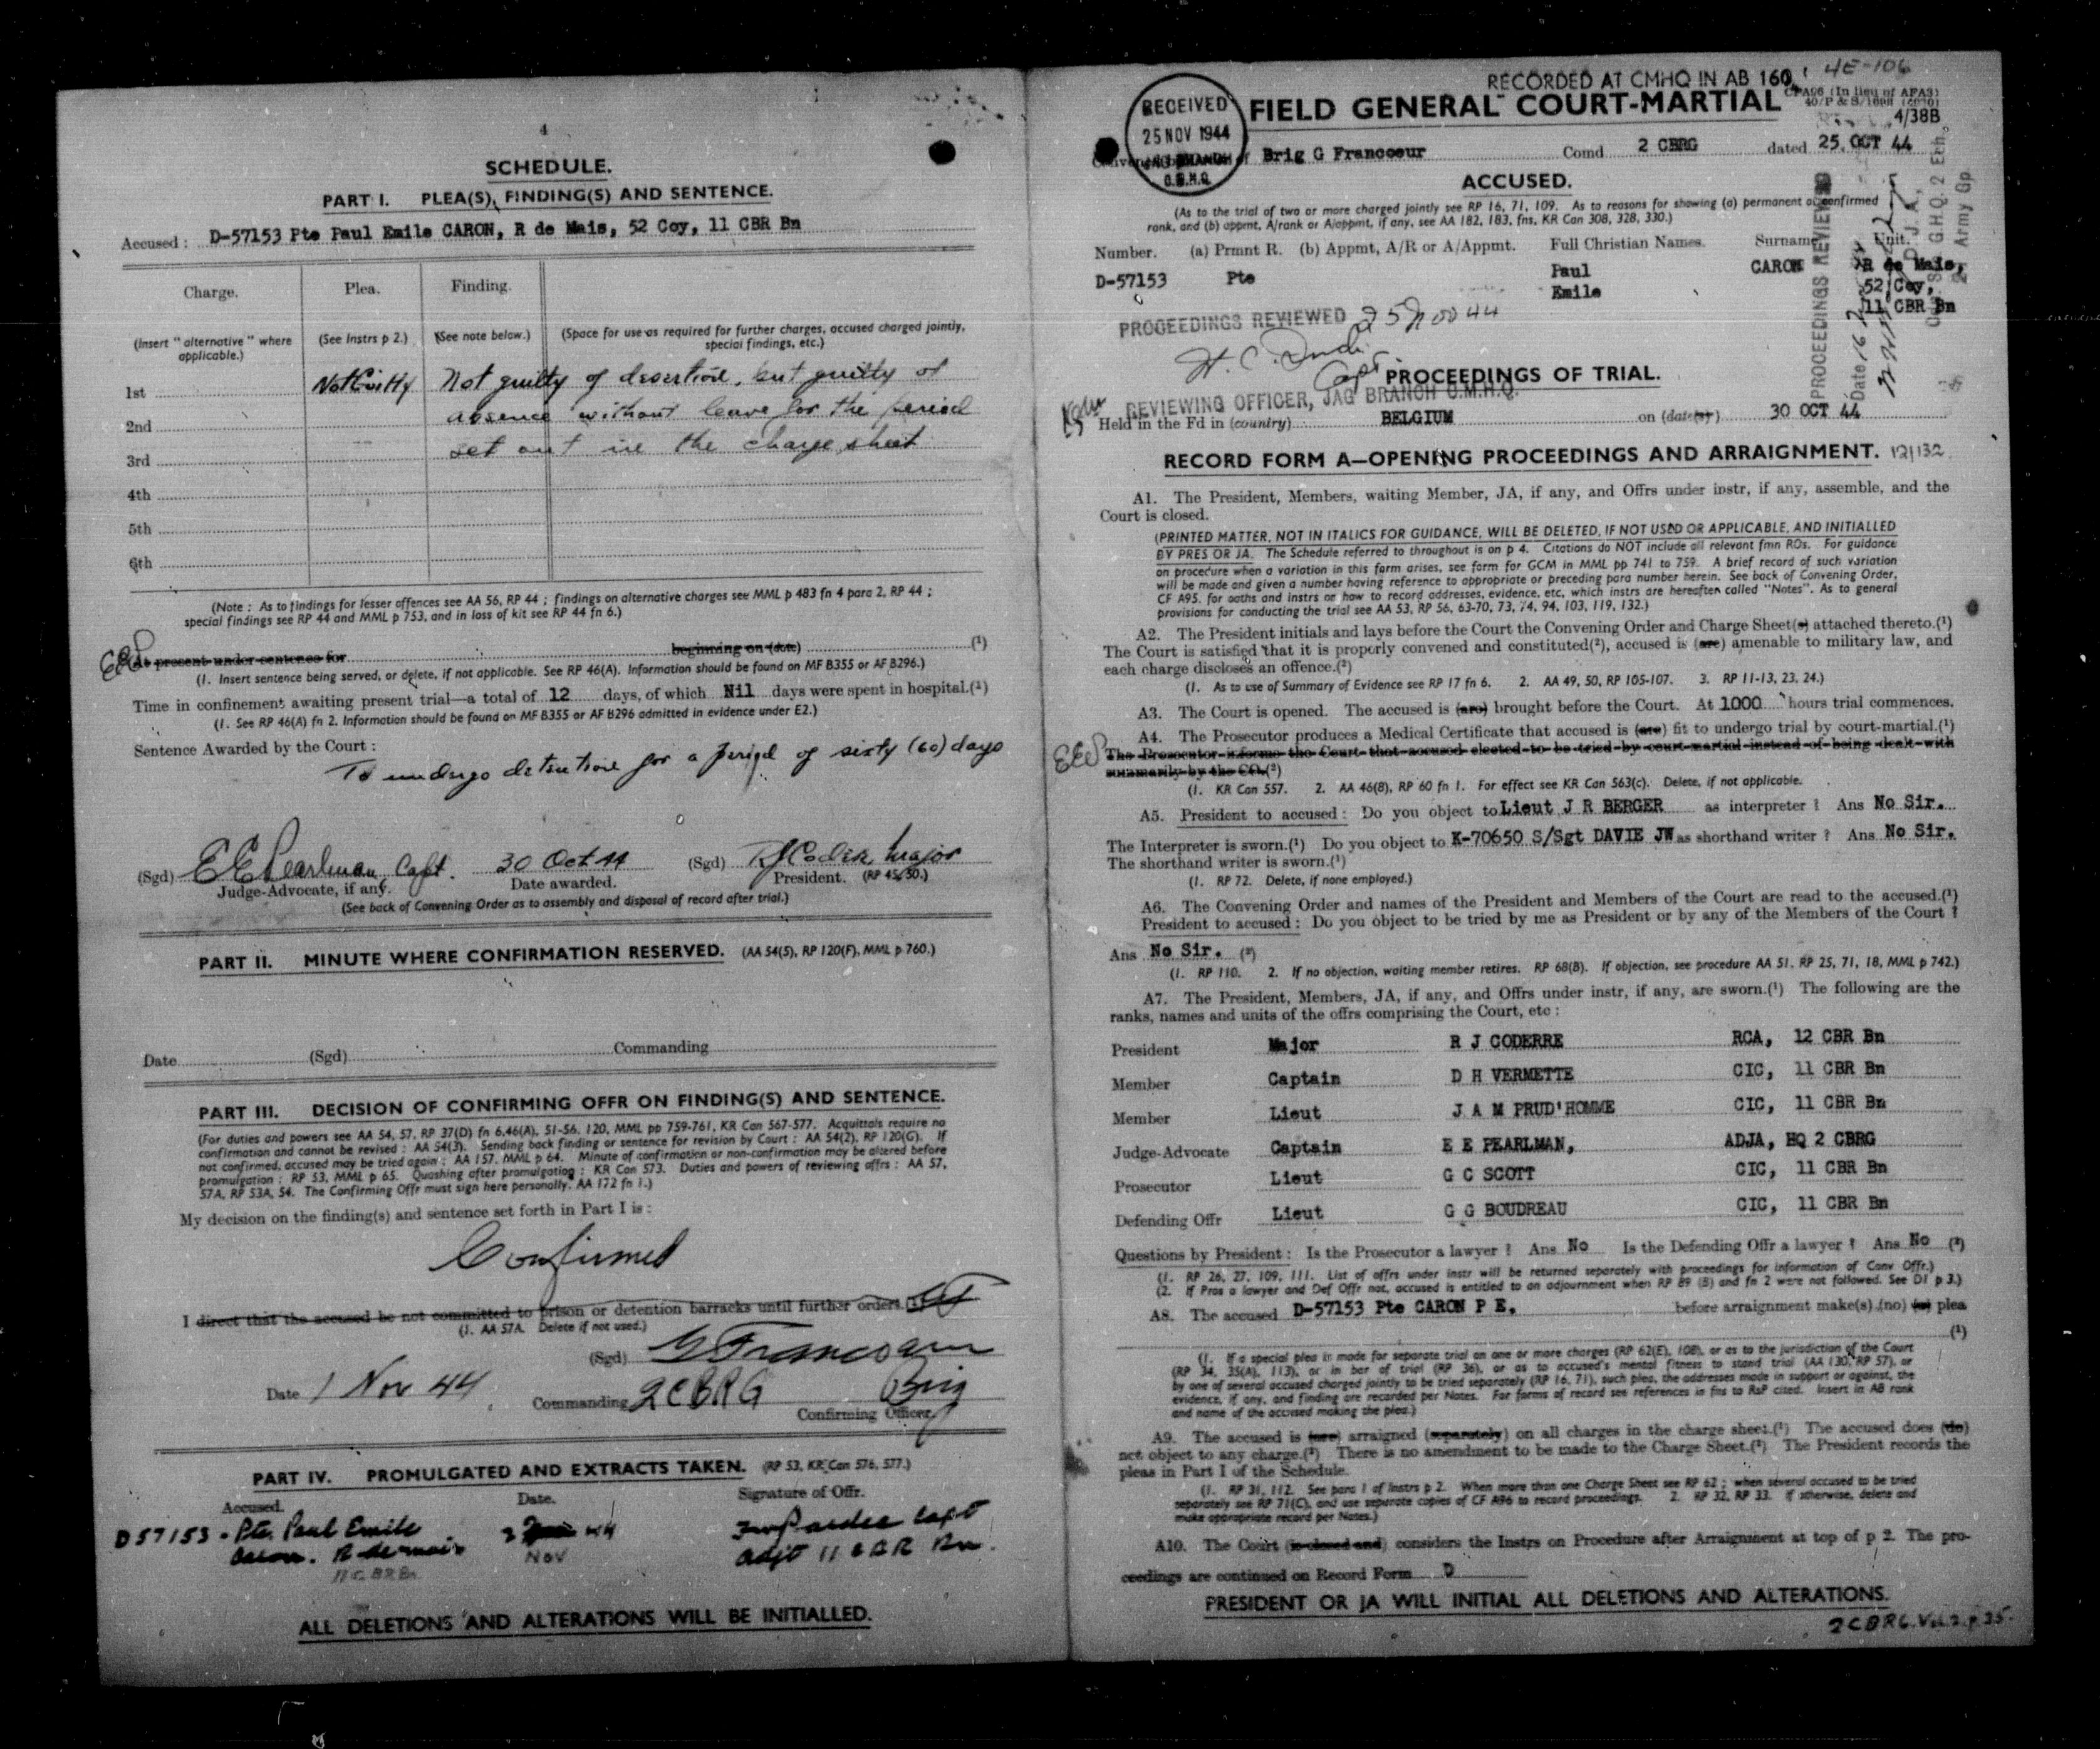 4
SCHEDULE.
PART I. PLEA(S), FINDING(S) AND SENTENCE.
Accused : D-57153 Pte Paul Emile CARON, R de Mais, 52 Coy, 11 CBR Bn
Charge. Plea. Finding.
(Insert "alternative" where applicable.) (See Instrs p 2.) (See note below.) (Space for use as required for further charges, accused charged jointly, special findings, etc.)
1st Not Guilty Not guilty of desertion, but guilty of
2nd absence without leave for the period
3rd set out in the charge sheet
4th
5th
6th
(Note : As to findings for lesser offences see AA 56, RP 44 ; findings on alternative charges see MML p 483 fn 4 para 2, RP 44 ;
special findings see RP 44 and MML p 753, and in loss of kit see RP 44 fn 6.)
EEP At present under sentence for beginning on (date) (¹)
(1. Insert sentence being served, or delete, if not applicable. See RP 46(A). Information should be found on MF B355 or AF B296.)
Time in confinement awaiting present trial—a total of 12 days, of which Nil days were spent in hospital.(¹)
(1. See RP 46(A) fn 2. Information should be found on MF B355 or AF B296 admitted in evidence under E2.)
Sentence Awarded by the Court :
To undergo detention for a period of sixty (60) days
(Sgd) E E Pearlman Capt. 30 Oct 44 (Sgd) R J Coderre Major
Judge-Advocate, if any. Date awarded. President. (RP 45, 50.)
(See back of Convening Order as to assembly and disposal of record after trial.)
PART II. MINUTE WHERE CONFIRMATION RESERVED. (AA 54(5), RP 120(F), MML p 760.)
Date (Sgd) Commanding
PART III. DECISION OF CONFIRMING OFFR ON FINDING(S) AND SENTENCE.
(For duties and powers see AA 54, 57, RP 37(D) fn 6, 46(A), 51-56, 120, MML pp 759-761, KR Can 567-577. Acquittals require no
confirmation and cannot be revised : AA 54(3). Sending back finding or sentence for revision by Court : AA 54(2), RP 120(G). If
not confirmed, accused may be tried again : AA 157, MML p 64. Minute of confirmation or non-confirmation may be altered before
promulgation : RP 53, MML p 65. Quashing after promulgation : KR Can 573. Duties and powers of reviewing offrs : AA 57,
57A, RP 53A, 54. The Confirming Offr must sign here personally. AA 172 fn 1.)
My decision on the finding(s) and sentence set forth in Part I is :
Confirmed
I direct that the accused be not committed to prison or detention barracks until further orders.(¹)
(1. AA 57A. Delete if not used.)
(Sgd) G Francoeur
Date 1 Nov 44 Commanding 2 CBRG Brig
Confirming Officer.
PART IV. PROMULGATED AND EXTRACTS TAKEN. (RP 53, KR Can 576, 577.)
Accused. Date. Signature of Offr.
D 57153 - Pte. Paul Emile 44 Capt
Caron. R de Mais Nov Adjt 11 CBR Bn.
11 CBR Bn
ALL DELETIONS AND ALTERATIONS WILL BE INITIALLED.
RECORDED AT CMHQ IN AB 160, 4E-106
RECEIVED
25 NOV 1944
JAG BRANCH
C.M.H.Q.
FIELD GENERAL COURT-MARTIAL
CFA96 (In lieu of AFA3)
4/38B
Brig G Francoeur Comd 2 CBRG dated 25 OCT 44
ACCUSED.
(As to the trial of two or more charged jointly see RP 16, 71, 109. As to reasons for showing (a) permanent or confirmed
rank, and (b) appmt, A/rank or A/appmt, if any, see AA 182, 183, fns, KR Can 308, 328, 330.)
Number. (a) Prmnt R. (b) Appmt, A/R or A/Appmt. Full Christian Names. Surname Unit.
D-57153 Pte Paul CARON R de Mais,
Emile 52 Coy,
11 CBR Bn
PROCEEDINGS REVIEWED 25 Nov 44
H. C.
Capt
REVIEWING OFFICER, JAG BRANCH C.M.H.Q.
PROCEEDINGS REVIEWED
Date 16
D.J.A.,
G.H.Q. 2 Ech.,
21 Army Gp
PROCEEDINGS OF TRIAL.
Held in the Fd in (country) BELGIUM on (date(s)) 30 OCT 44
RECORD FORM A—OPENING PROCEEDINGS AND ARRAIGNMENT. 121132
A1. The President, Members, waiting Member, JA, if any, and Offrs under instr, if any, assemble, and the
Court is closed.
(PRINTED MATTER, NOT IN ITALICS FOR GUIDANCE, WILL BE DELETED, IF NOT USED OR APPLICABLE, AND INITIALLED
BY PRES OR JA. The Schedule referred to throughout is on p 4. Citations do NOT include all relevant fmn ROs. For guidance
on procedure when a variation in this form arises, see form for GCM in MML pp 741 to 759. A brief record of such variation
will be made and given a number having reference to appropriate or preceding para number herein. See back of Convening Order,
CF A95, for oaths and instrs on how to record addresses, evidence, etc, which instrs are hereafter called "Notes". As to general
provisions for conducting the trial see AA 53, RP 56, 63-70, 73, 74, 94, 103, 119, 132.)
A2. The President initials and lays before the Court the Convening Order and Charge Sheet(s) attached thereto.(¹)
The Court is satisfied that it is properly convened and constituted(²), accused is (are) amenable to military law, and
each charge discloses an offence.(³)
(1. As to use of Summary of Evidence see RP 17 fn 6. 2. AA 49, 50, RP 105-107. 3. RP 11-13, 23, 24.)
A3. The Court is opened. The accused is (are) brought before the Court. At 1000 hours trial commences.
A4. The Prosecutor produces a Medical Certificate that accused is (are) fit to undergo trial by court-martial.(¹)
EEP The Prosecutor informs the Court that accused elected to be tried by court-martial instead of being dealt with
summarily by the CO.(²)
(1. KR Can 557. 2. AA 46(8), RP 60 fn 1. For effect see KR Can 563(c). Delete, if not applicable.
A5. President to accused : Do you object to Lieut J R BERGER as interpreter ? Ans No Sir.
The Interpreter is sworn.(¹) Do you object to K-70650 S/Sgt DAVIE JW as shorthand writer ? Ans No Sir.
The shorthand writer is sworn.(¹)
(1. RP 72. Delete, if none employed.)
A6. The Convening Order and names of the President and Members of the Court are read to the accused.(¹)
President to accused : Do you object to be tried by me as President or by any of the Members of the Court ?
Ans No Sir. (²)
(1. RP 110. 2. If no objection, waiting member retires. RP 68(B). If objection, see procedure AA 51, RP 25, 71, 18, MML p 742.)
A7. The President, Members, JA, if any, and Offrs under instr, if any, are sworn.(¹) The following are the
ranks, names and units of the offrs comprising the Court, etc :
President Major R J CODERRE RCA, 12 CBR Bn
Member Captain D H VERMETTE CIC, 11 CBR Bn
Member Lieut J A M PRUD'HOMME CIC, 11 CBR Bn
Judge-Advocate Captain E E PEARLMAN, ADJA, HQ 2 CBRG
Prosecutor Lieut G C SCOTT CIC, 11 CBR Bn
Defending Offr Lieut G G BOUDREAU CIC, 11 CBR Bn
Questions by President : Is the Prosecutor a lawyer ? Ans No Is the Defending Offr a lawyer ? Ans No (²)
(1. RP 26, 27, 109, 111. List of offrs under instr will be returned separately with proceedings for information of Conv Offr.)
(2. If Pros a lawyer and Def Offr not, accused is entitled to an adjournment when RP 89 (B) and fn 2 were not followed. See D1 p 3.)
A8. The accused D-57153 Pte CARON P E, before arraignment make(s) (no) (a) plea
(¹)
(1. If a special plea is made for separate trial on one or more charges (RP 62(E), 108), or as to the jurisdiction of the Court
(RP 34, 35(A), 113), or in bar of trial (RP 36), or as to accused's mental fitness to stand trial (AA 130, RP 57), or
by one of several accused charged jointly to be tried separately (RP 16, 71), such plea, the addresses made in support or against, the
evidence, if any, and finding are recorded per Notes. For forms of record see references in fns to RsP cited. Insert in A8 rank
and name of the accused making the plea.)
A9. The accused is (are) arraigned (separately) on all charges in the charge sheet.(¹) The accused does (do)
not object to any charge.(²) There is no amendment to be made to the Charge Sheet.(¹) The President records the
pleas in Part I of the Schedule.
(1. RP 31, 112. See para 1 of Instrs p 2. When more than one Charge Sheet see RP 62 ; when several accused to be tried
separately see RP 71(C), and use separate copies of CF A96 to record proceedings. 2. RP 32, RP 33. If otherwise, delete and
make appropriate record per Notes.)
A10. The Court (is closed and) considers the Instrs on Procedure after Arraignment at top of p 2. The pro-
ceedings are continued on Record Form D
PRESIDENT OR JA WILL INITIAL ALL DELETIONS AND ALTERATIONS.
2CBRG. Vol 2. p 35.